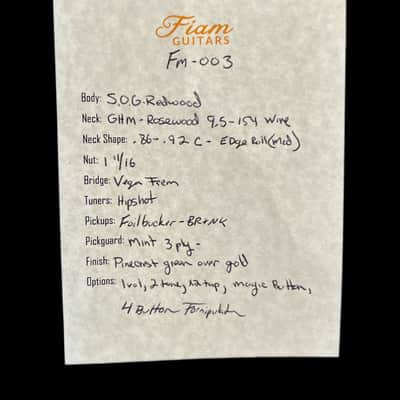 Fiam
GUITARS
Fm-003
Body: S.O.G. Redwood
Neck: GHM - Rosewood 9.5 - 154 Wire
Neck Shape: .86 - .92 C - Edge Roll (med)
Nut: 1 11/16
Bridge: Vega Trem
Tuners: Hipshot
Pickups: Foilbucker - BR+NK
Pickguard: Mint 3 ply -
Finish: Pinecrest green over gold
Options: 1vol, 2 tone, magic Button,
4 Button